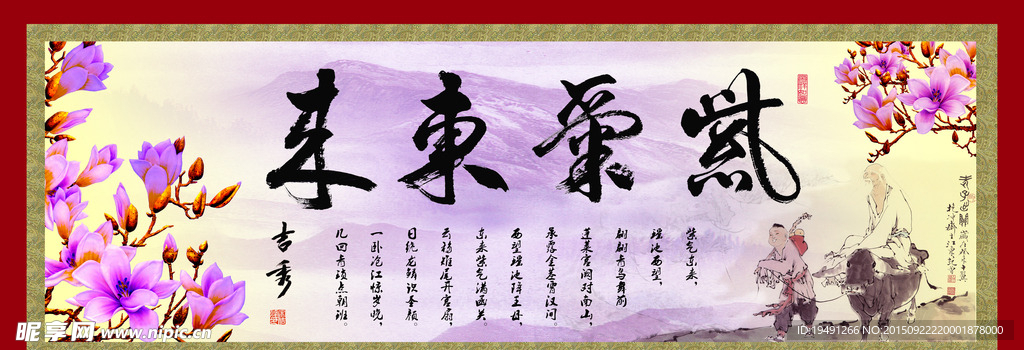 紫氣東来
紫气东来，
瑶池西望，
翩翩青鸟舞前
蓬莱宫阙对南山，
承露金茎霄汉间。
西望瑶池降王母，
东来紫气满函关。
云移雉尾开宫扇，
日绕龙鳞识圣颜。
一卧沧江惊岁晚，
几回青琐点朝班。
吉秀
老子出關
昵享网 www.nipic.cn
ID:19491266 NO:20150922220001878000